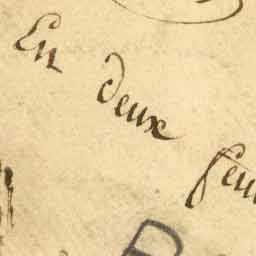 En deux feui